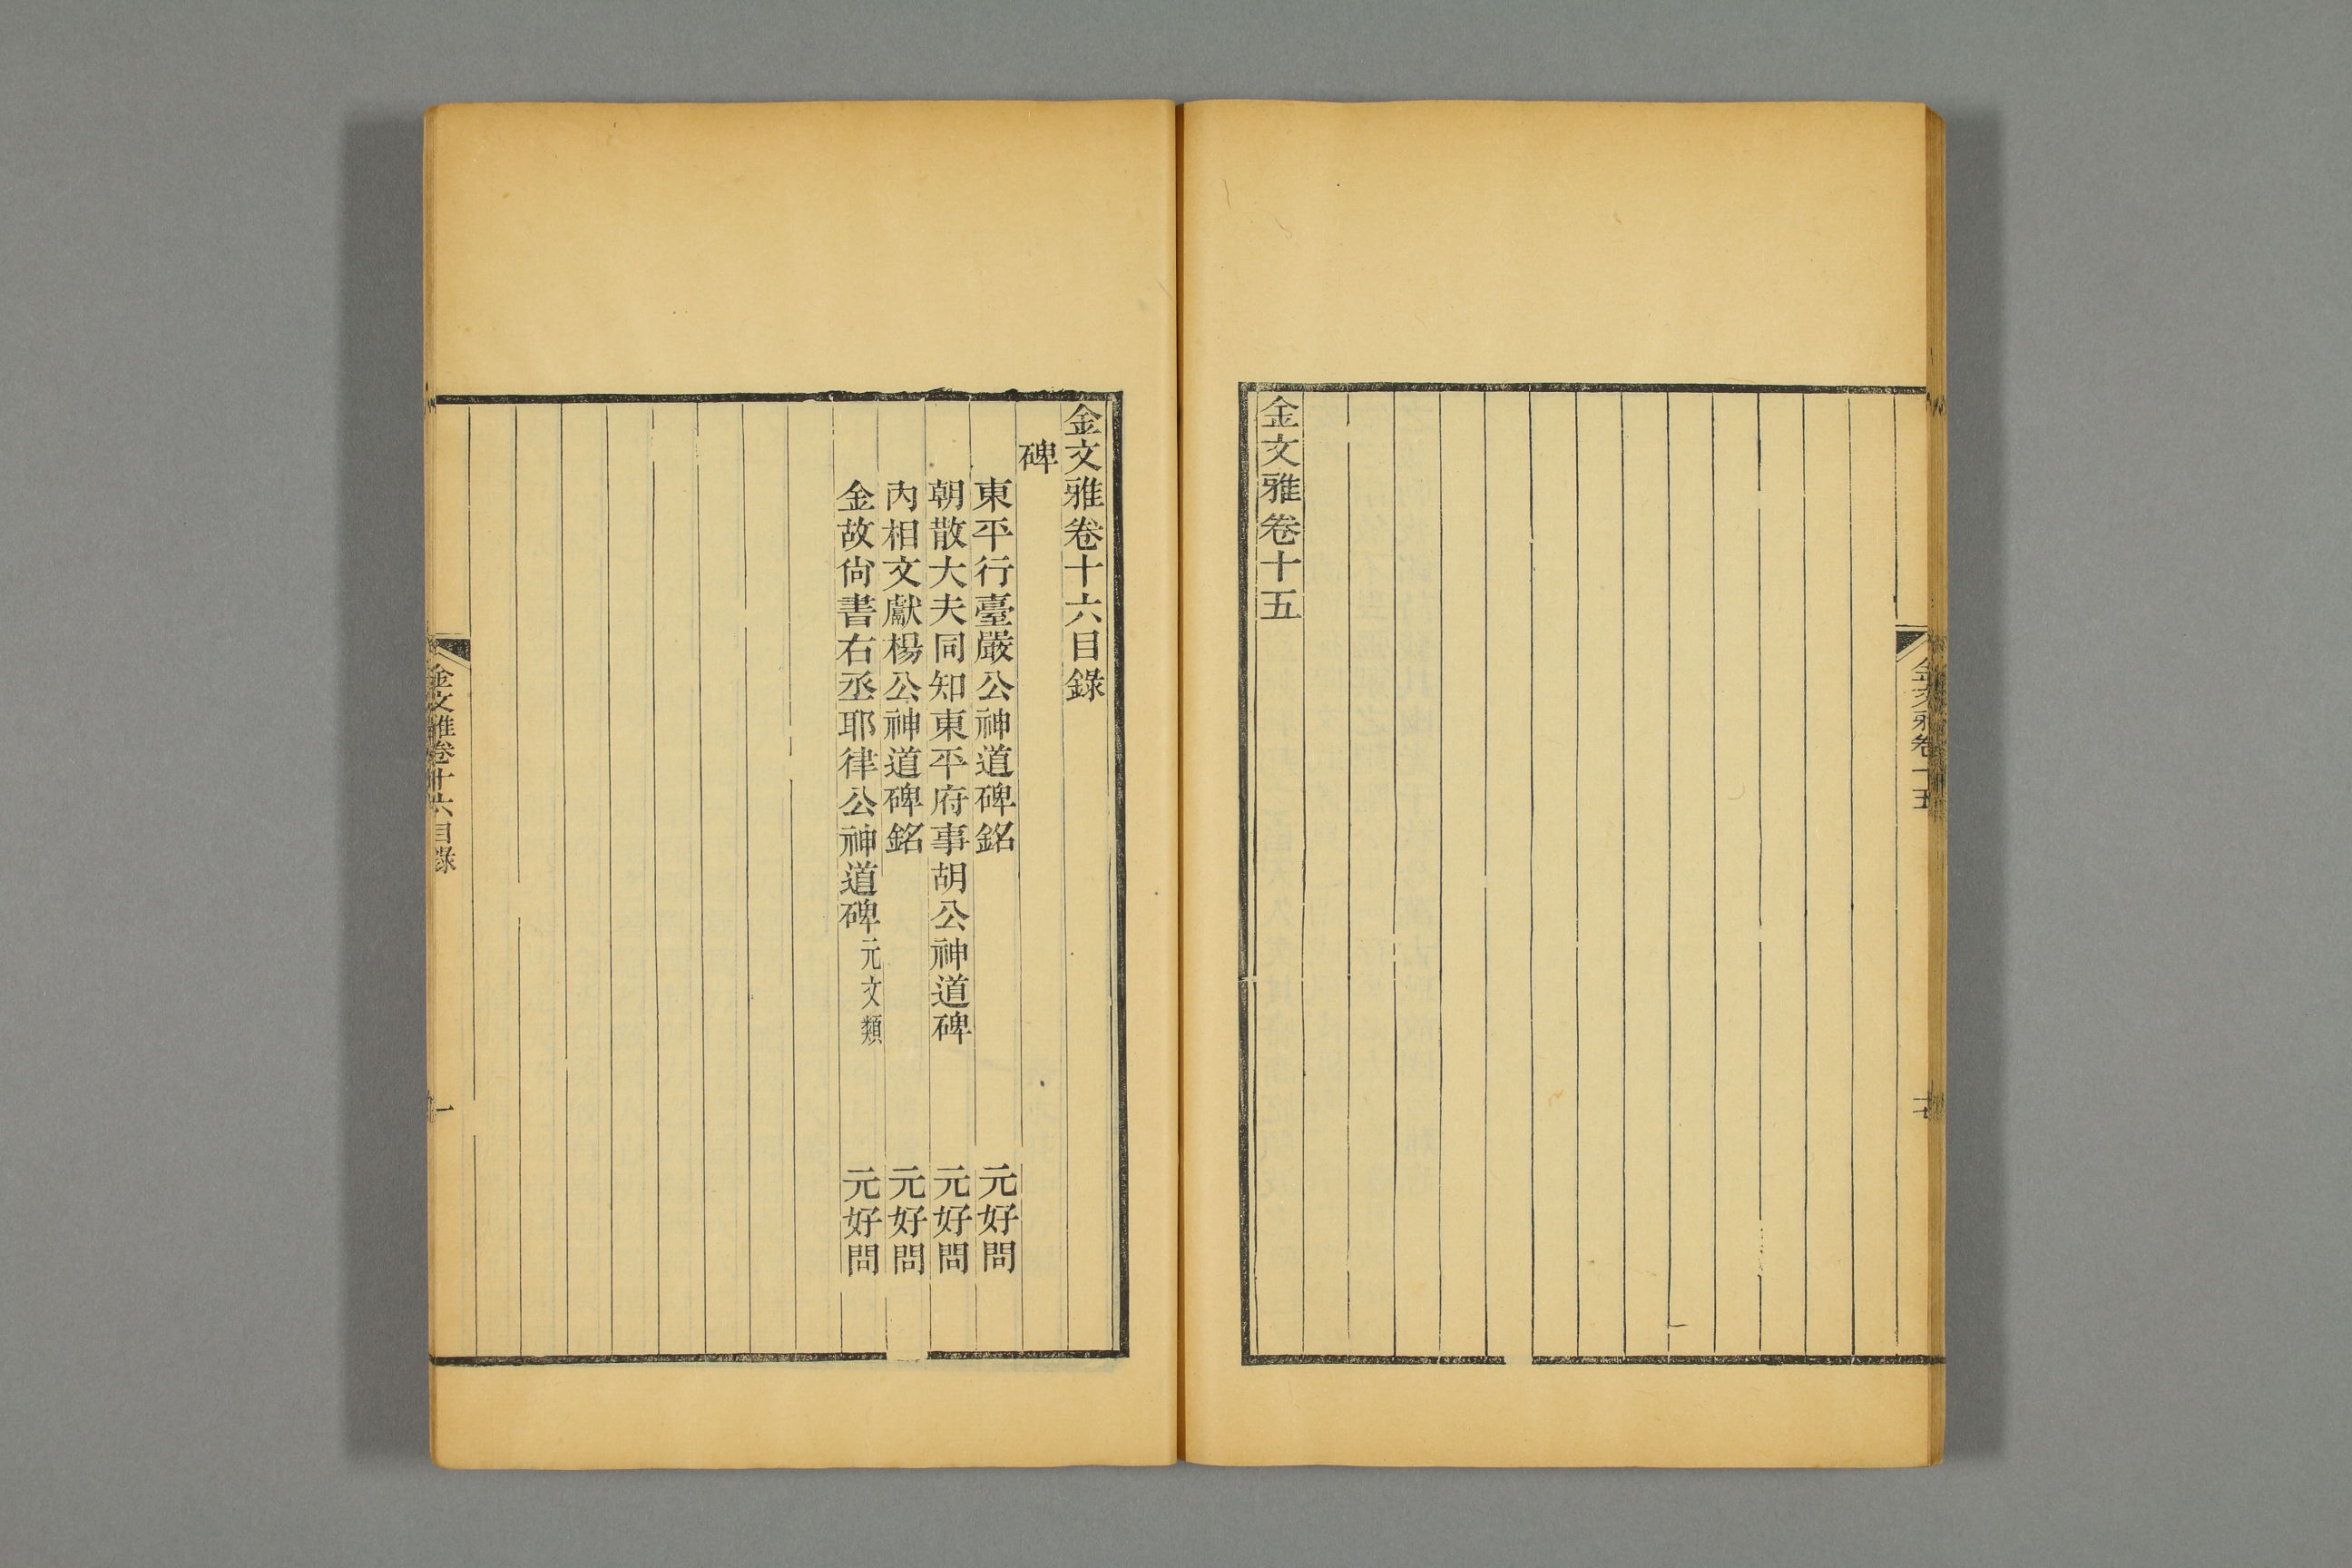 金文雅卷十五
金文雅卷十五
十七
金文雅卷十六目錄
碑
東平行臺嚴公神道碑銘 元好問
朝散大夫同知東平府事胡公神道碑 元好問
內相文獻楊公神道碑銘 元好問
金故尙書右丞耶律公神道碑 元文類 元好問
金文雅卷十六目錄
一